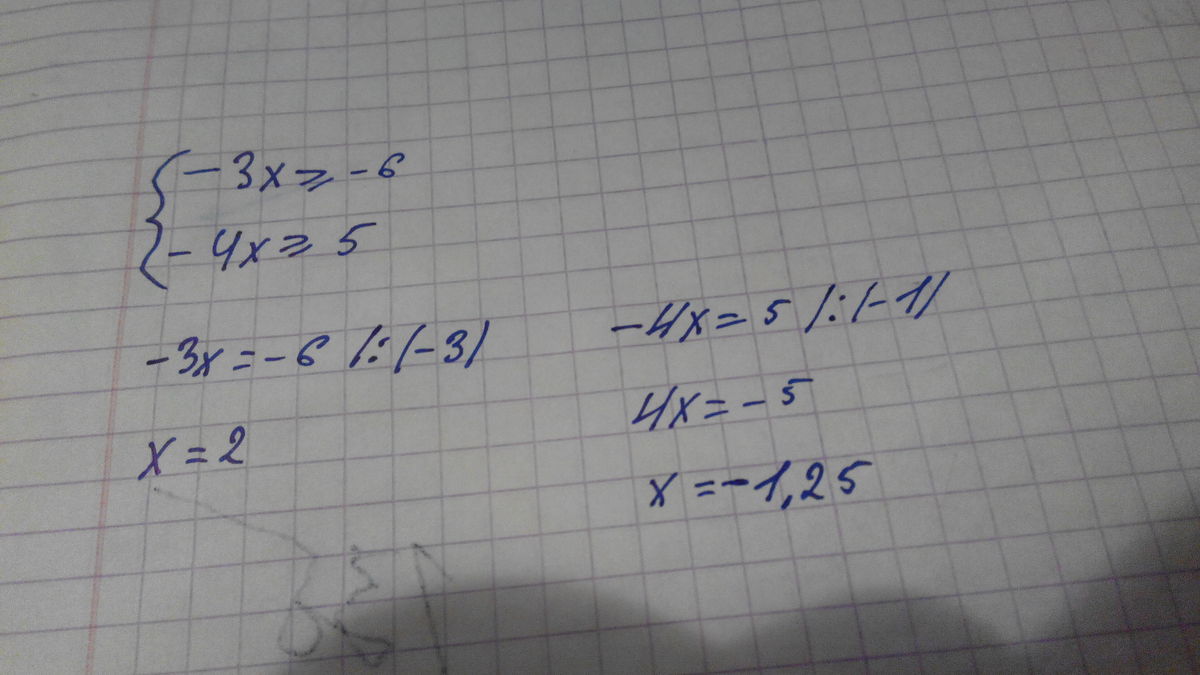 { -3x ⩾ -6
-4x ⩾ 5
-3x = -6 /: (-3)
x = 2
-4x = 5 /: (-1)
4x = -5
x = -1,25